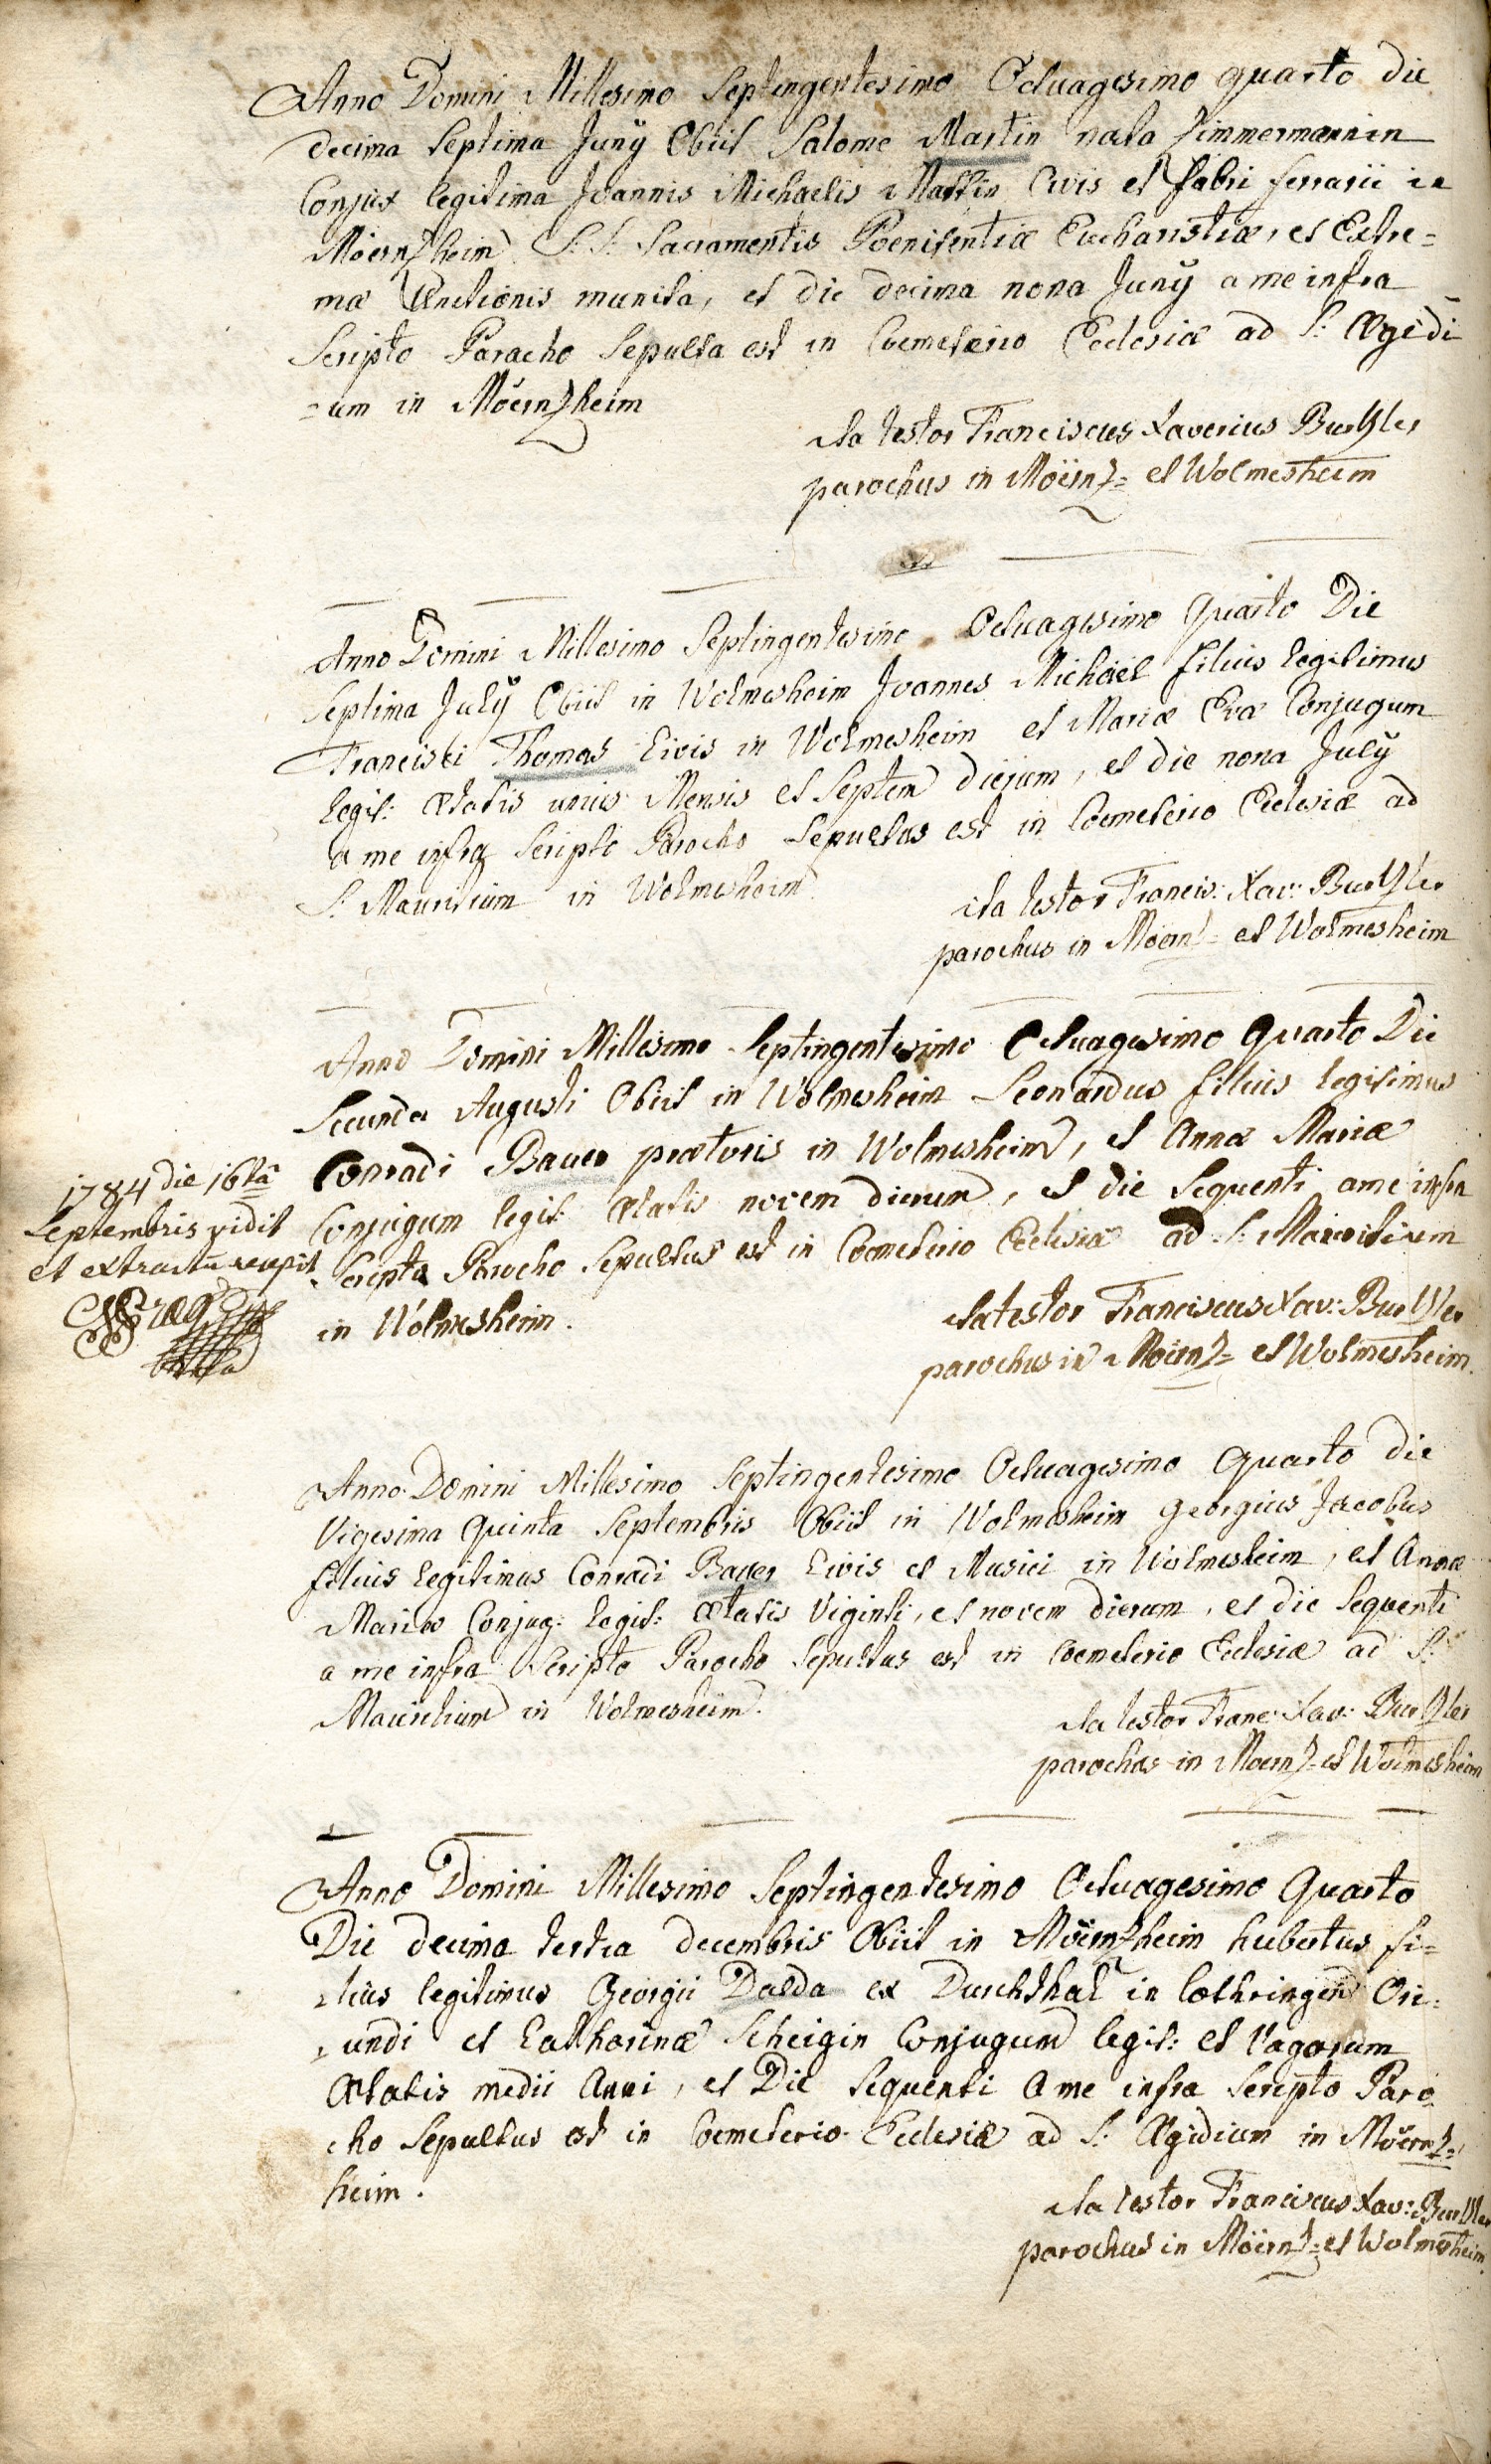 Anno Domini Millesimo Septingentesimo Octuagesimo quarto die
decima Septima Junÿ Obiit Salome Martin nata Zimmermannin
Conjux legitima Joannis Michaelis Martin Civis et fabri ferrarii in
Moërnzheim S: S: Sacramentis Poenitentiæ Eucharistiæ, et Extre=
mæ Unctionis munita, et die decima nona Junÿ a me infra
Scripto Parocho Sepulta est in Coemeterio Ecclesiæ ad S: Ægidi
=um in Moërnzheim
Ita testor Franciscus Xaverius
parochus in Moërnz= et Wolmesheim
Anno Domini Millesimo Septingentesimo Octuagesimo Quarto Die
Septima Julÿ Obiit in Wolmesheim Joannes Michaël filius legitimus
Francisci Thomas Civis in Wolmesheim et Mariæ Evæ Conjugum
legit: ætatis unius Mensis et Septem dierum, et die nona Julÿ
a me infra Scripto Parocho Sepultus est in Coemeterio Ecclesiæ ad
S: Mauritium in Wolmesheim
ita testor Francis: Xav:
parochus in Moërnz= et Wolmesheim
Anno Domini Millesimo Septingentesimo Octuagesimo Quarto Die
Secunda Augusti Obiit in Wolmesheim Leonardus filius legitimus
Conradi Bauer prætoris in Wolmesheim, et Annæ Mariæ
Conjugum legit: ætatis novem dierum, et die Sequenti a me infra
Scripto Parocho Sepultus est in Coemeterio Ecclesiæ ad S: Mauritium
in Wolmesheim.
1784 die 16tâ
Septembris vidit
et extractū recepit
Ita testor Franciscus Xav:
parochus in Moërnz= et Wolmesheim.
Anno Domini Millesimo Septingentesimo Octuagesimo Quarto die
Vigesima Quinta Septembris Obiit in Wolmesheim Georgius Jacobus
filius legitimus Conradi Bauer Civis et Musici in Wolmesheim, et Annæ
Mariæ Conjug: legit: ætatis Viginti, et novem dierum, et die Sequenti
a me infra Scripto Parocho Sepultus est in Coemeterio Ecclesiæ ad S:
Mauritium in Wolmesheim.
Ita testor Franc: Xav:
parochus in Moërnz= et Wolmesheim
Anno Domini Millesimo Septingentesimo Octuagesimo Quarto
Die decima tertia decembris Obiit in Moërnzheim hubertus fi=
=lius legitimus Georgii Dalda ex Durchthal in lothringen Ori=
=undi et Catharinæ Scheigin Conjugum legit: et Vagorum
Ætatis medii Anni, et Die Sequenti A me infra Scripto Paro
cho Sepultus est in Coemeterio Ecclesiæ ad S: Ægidium in Moërnz=
heim.
Ita testor Franciscus Xav:
parochus in Moërnz= et Wolmesheim.